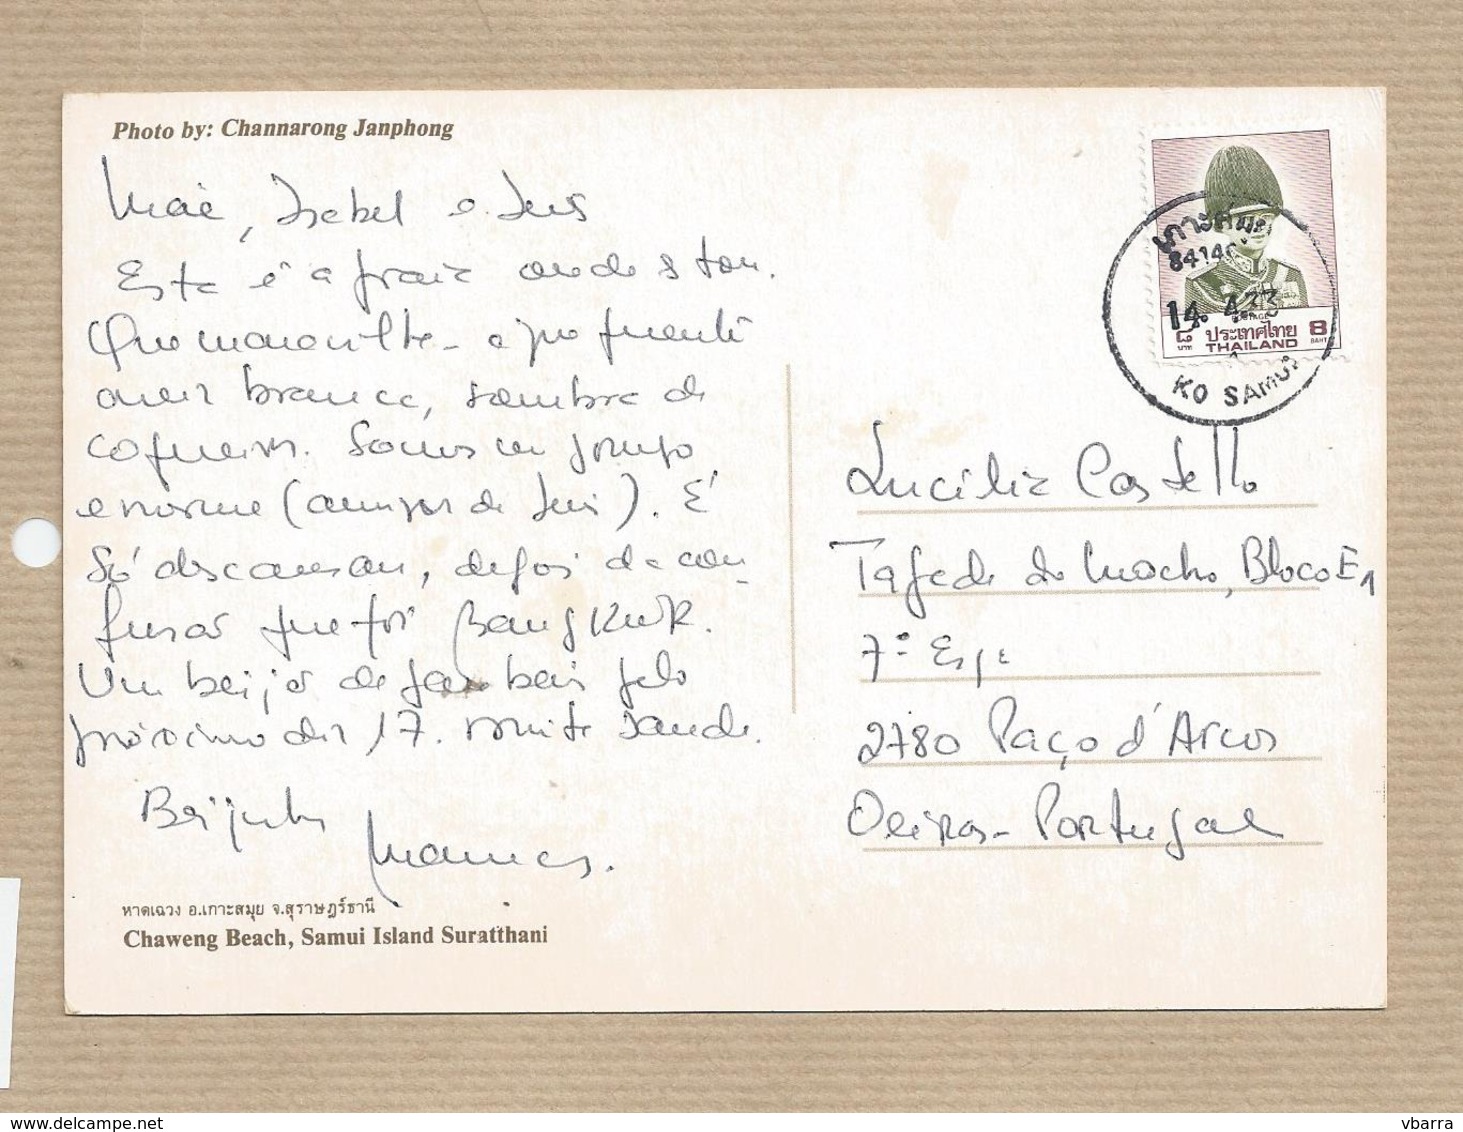 Photo by: Channarong Janphong
Mãe, Isabel e
Esta é a praia onde estou.
Que maravilha - água quente
areia branca, sombra de
coqueiros. Somos um grupo
enorme (amigos de). É
só descansar, depois da con-
fusão que foi Bangkok.
Um beijo de parabéns pelo
próximo dia 17. Muita saúde.
Beijinhos
หาดเฉวง อ.เกาะสมุย จ.สุราษฎร์ธานี
Chaweng Beach, Samui Island Suratthani
เกาะสมุย
84140
14
KO SAMUI
๘ ประเทศไทย 8
บาท THAILAND BAHT
Lucília Castello
Tapada do Mocho, Bloco E1
7º Esq
2780 Paço d'Arcos
Oeiras - Portugal
delcampe.net
vbarra